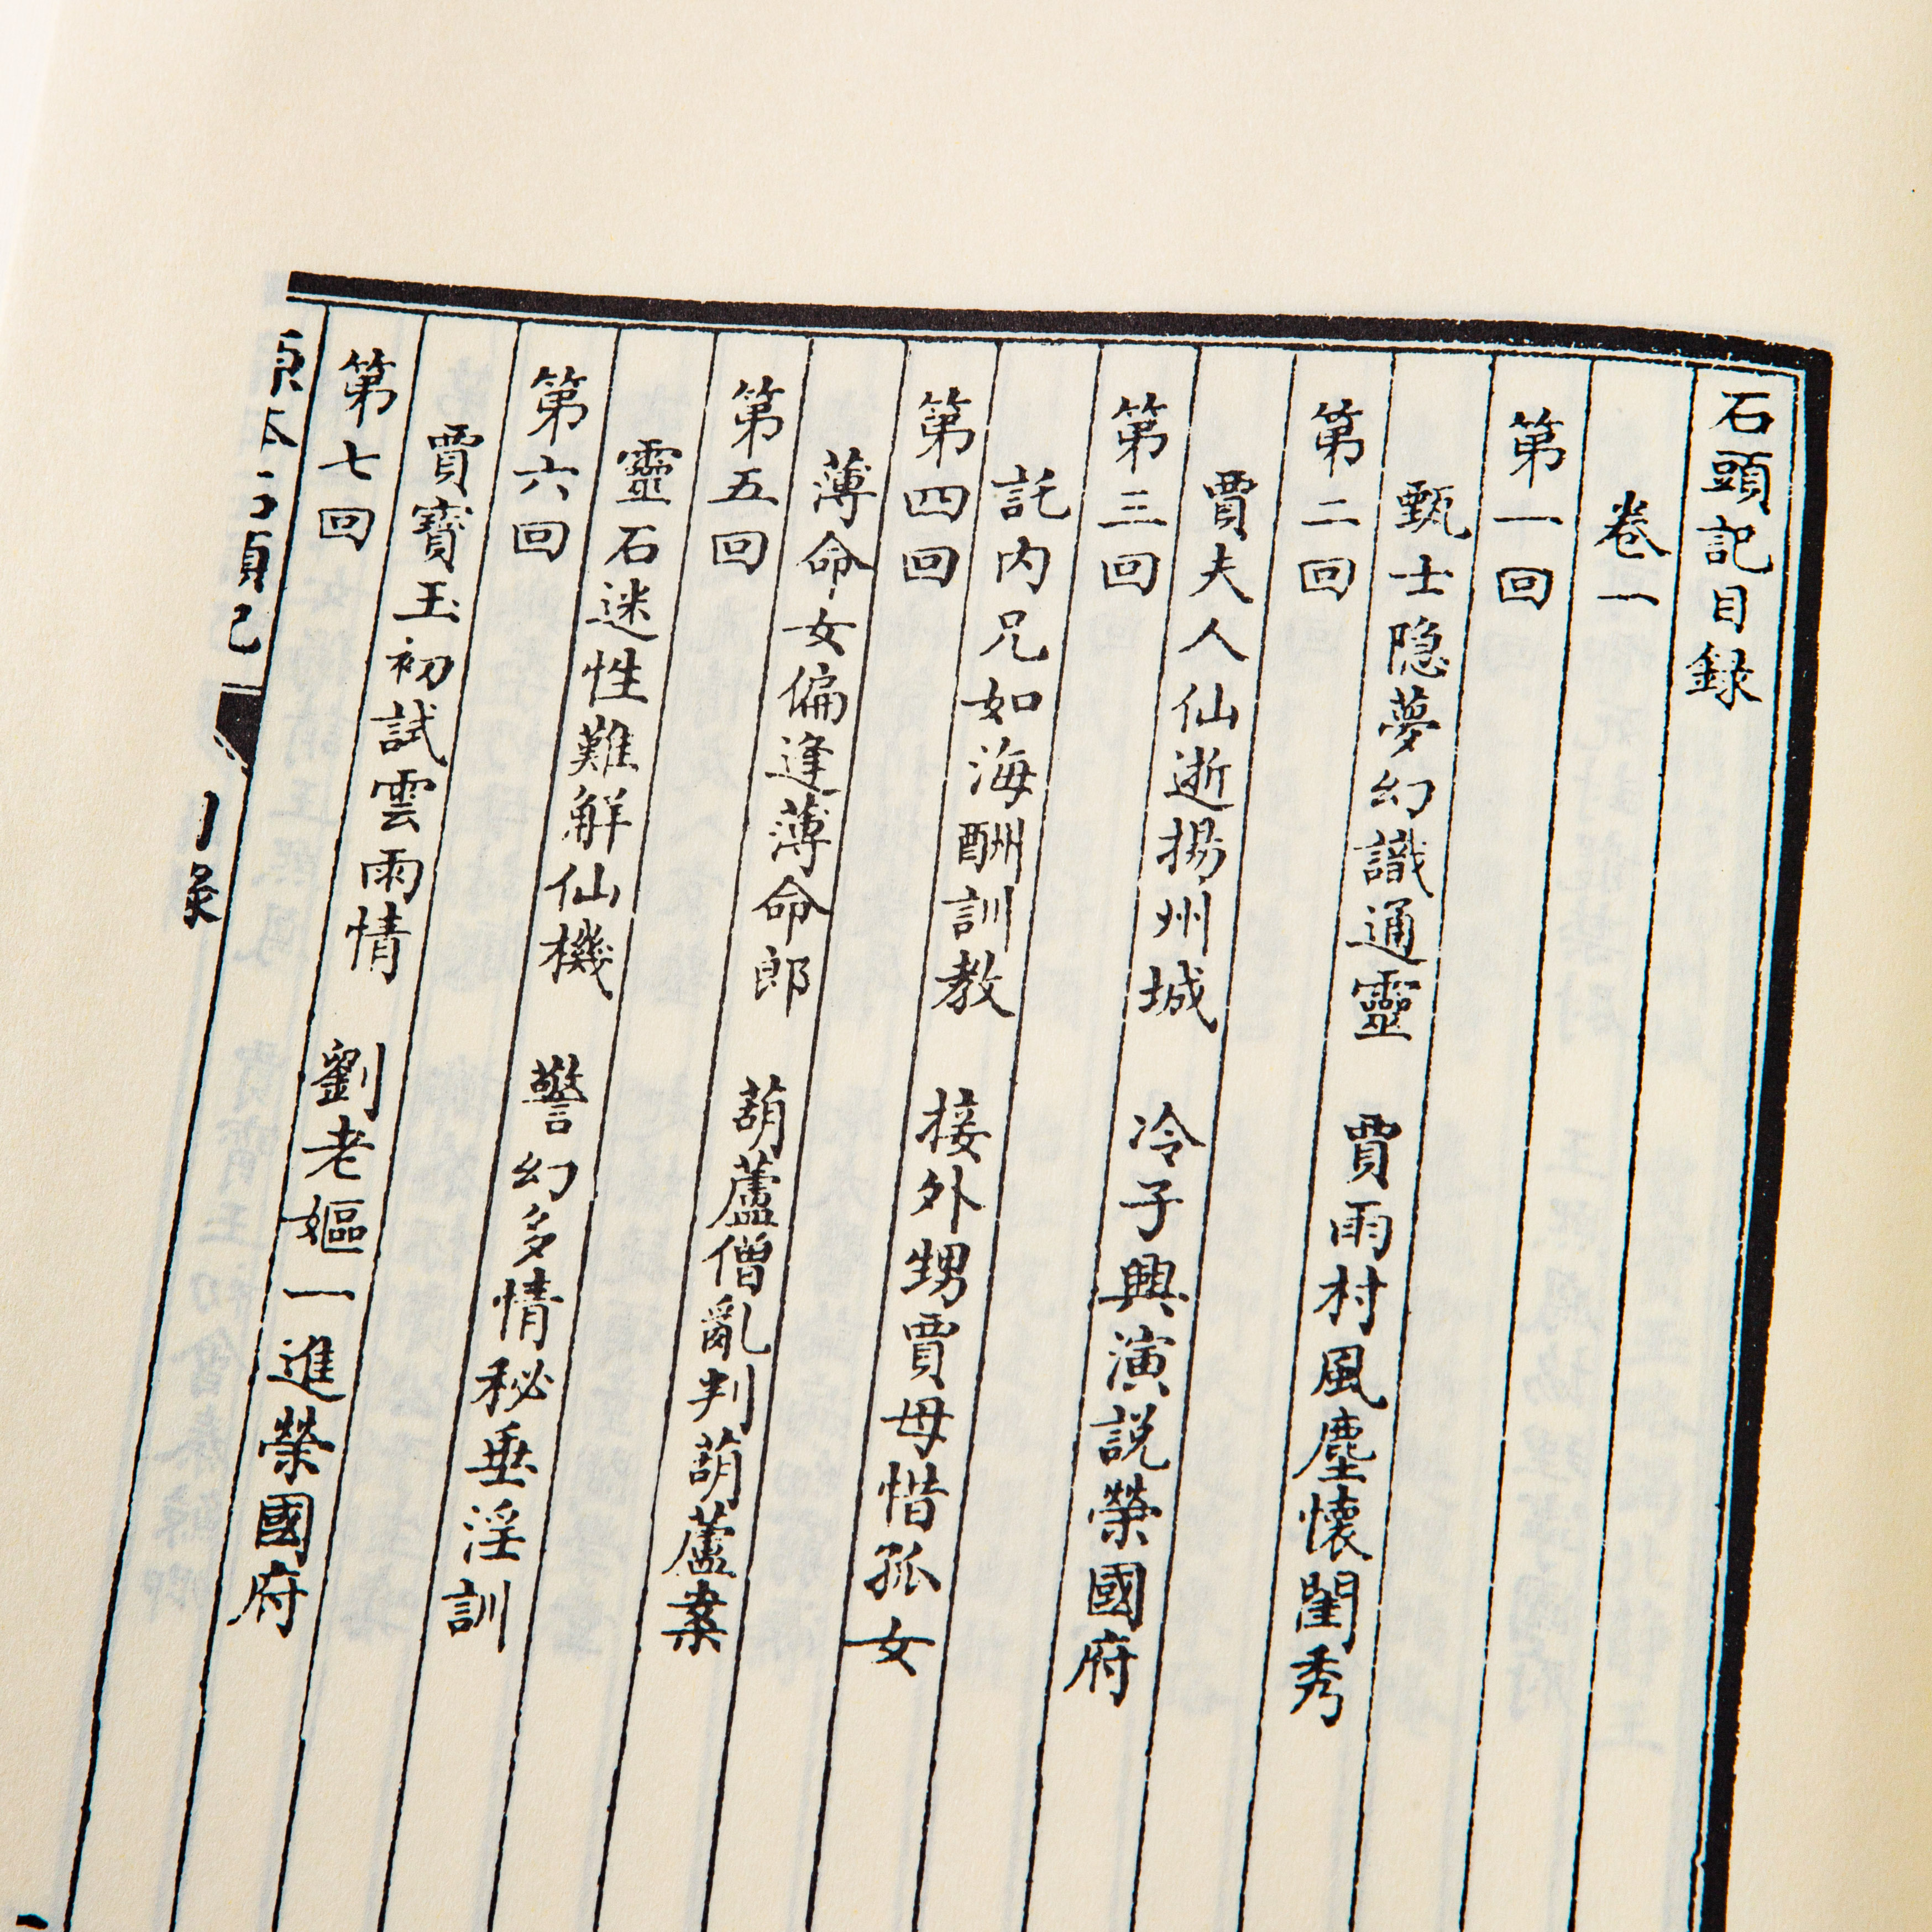 石頭記目録
卷一
第一回
甄士隐夢幻識通靈　賈雨村風塵懷閨秀
第二回
賈夫人仙逝揚州城　冷子興演説榮國府
第三回
託内兄如海酬訓教　接外甥賈母惜孤女
第四回
薄命女偏逢薄命郎　葫蘆僧亂判葫蘆案
第五回
靈石迷性難解仙機　警幻多情秘垂淫訓
第六回
賈寶玉初試雲雨情　劉老嫗一進榮國府
第七回